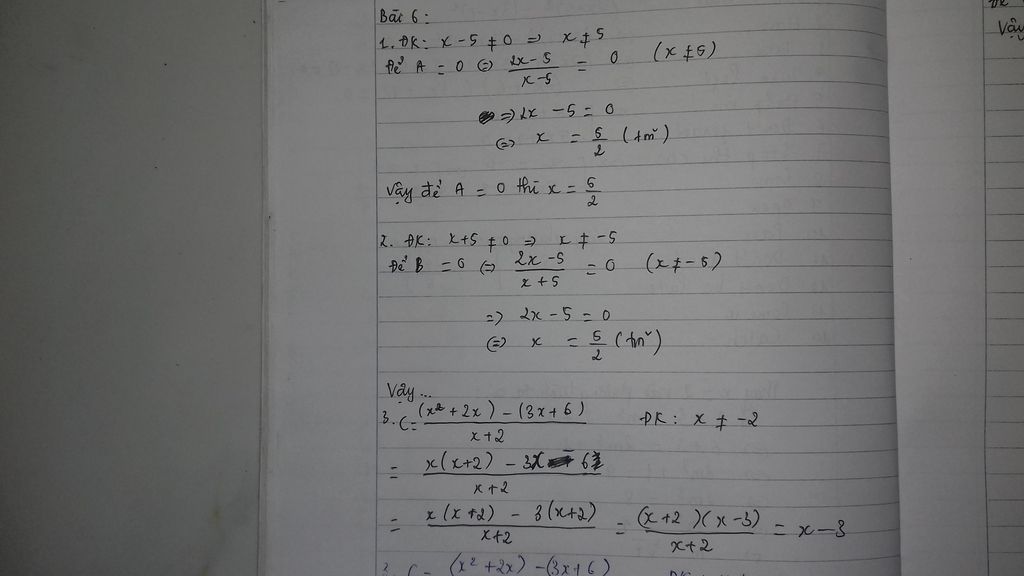 Bài 6:
1. ĐK: x - 5 ≠ 0 => x ≠ 5
Để A = 0 <=> (2x - 5)/(x - 5) = 0 (x ≠ 5)
=> 2x - 5 = 0
<=> x = 5/2 (tm)
Vậy để A = 0 thì x = 5/2
2. ĐK: x + 5 ≠ 0 => x ≠ -5
Để B = 0 <=> (2x - 5)/(x + 5) = 0 (x ≠ -5)
=> 2x - 5 = 0
<=> x = 5/2 (tm)
Vậy ...
3. C = ((x² + 2x) - (3x + 6))/(x + 2) ĐK: x ≠ -2
= (x(x + 2) - 3x - 6)/(x + 2)
= (x(x + 2) - 3(x + 2))/(x + 2) = ((x + 2)(x - 3))/(x + 2) = x - 3
3. C = (x² + 2x) - (3x + 6)
Vậy